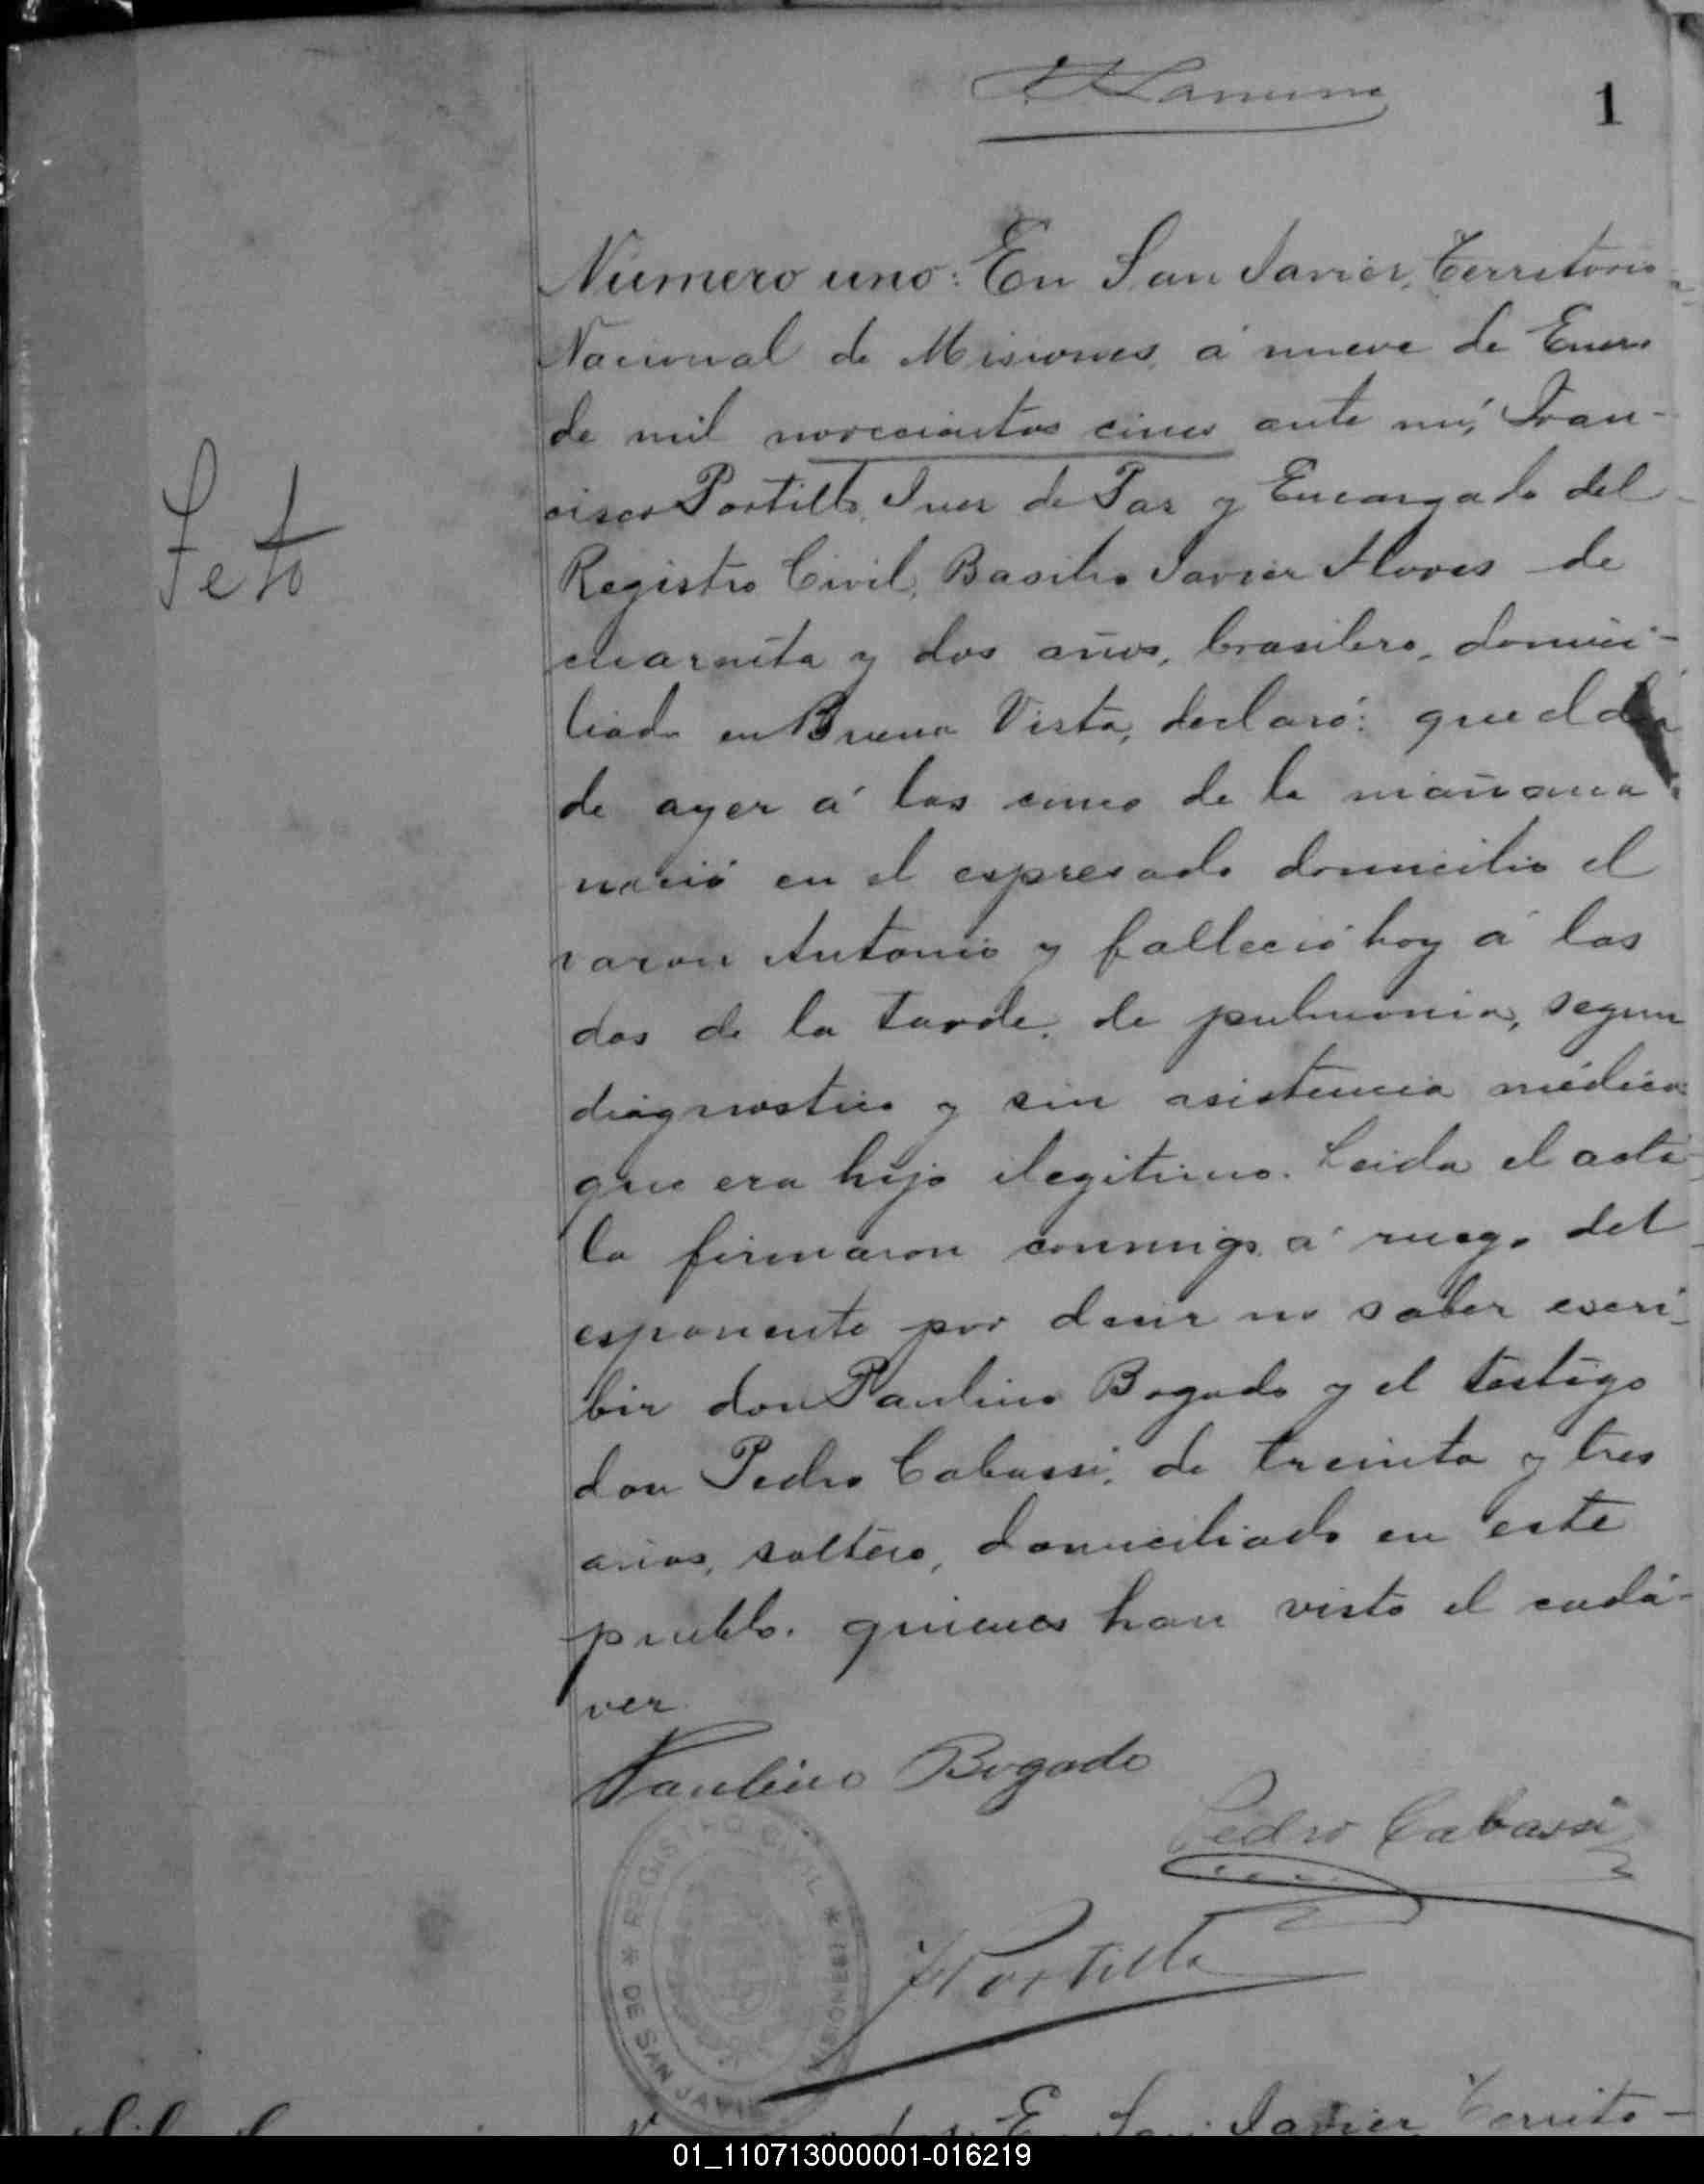 1
Numero uno: En San Javier, Territorio
Nacional de Misiones, á nueve de Enero
de mil novecientos cinco ante mi, Fran-
cisco Portillo, Juez de Paz y Encargado del
Feto
Registro Civil, Basilio Javier Flores de
cuarenta y dos años, brasilero, domici-
liado en Buena Vista, declaró: que el dia
de ayer á las cinco de la mañana
nació en el expresado domicilio el
varon Antonio y falleció hoy á las
dos de la tarde, de pulmonia, segun
diagnostico y sin asistencia médica:
que era hijo ilegitimo. Leida el acta
la firmaron conmigo á ruego del
esponente por decir no saber escri-
bir don Paulino Bogado y el testigo
don Pedro Cabassi, de treinta y tres
años, soltero, domiciliado en este
pueblo. quienes han visto el cadá-
ver.
Paulino Bogado
Pedro Cabassi
FPortillo
* REGISTRO CIVIL * DE SAN JAVIER MISIONES
En San Javier Territo-
01_110713000001-016219